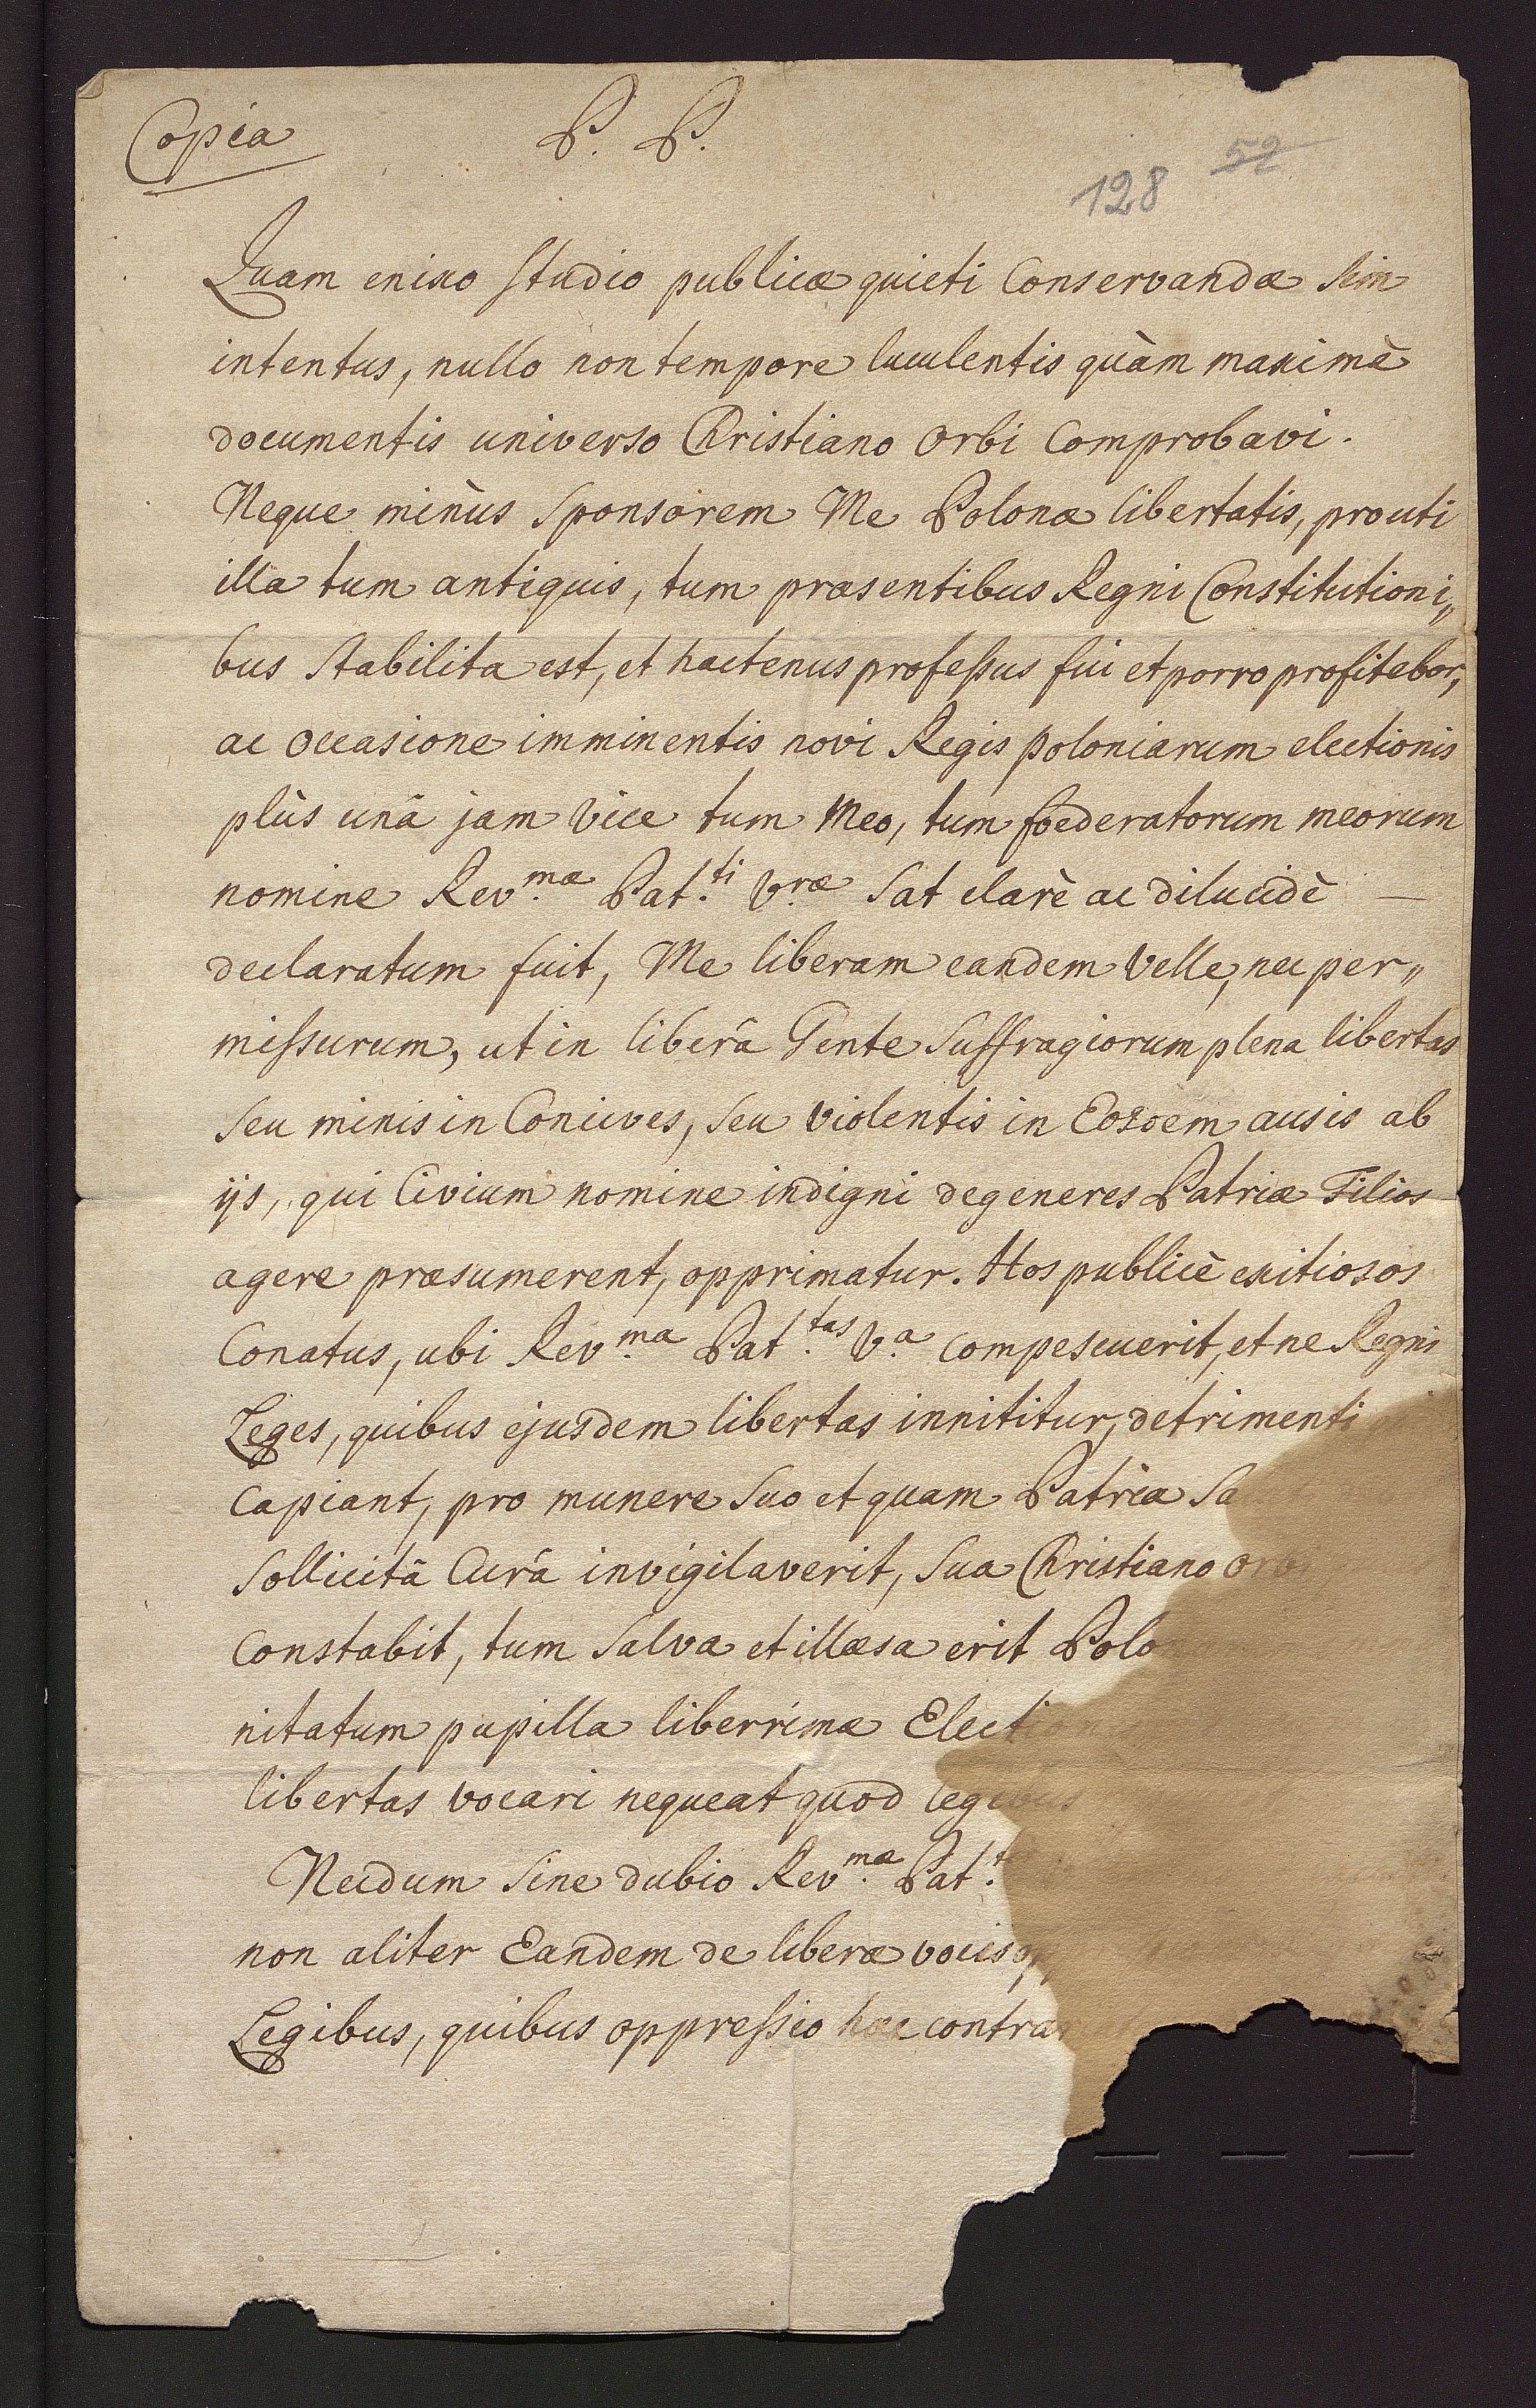 Copia P. P.
128 52
Quam enixo studio publicæ quieti Conservandæ sim
intentus, nullo non tempore luculentis quàm maximè
documentis universo Christiano Orbi Comprobavi.
Neque minùs Sponsorem Me Polonæ libertatis, prouti
illa tum antiquis, tum præsentibus Regni Constitutioni„
bus stabilita est, et hactenus professus fui et porro profitebor,
ac occasione imminentis novi Regis poloniarum electionis
plùs unâ jam vice tum Meo, tum foederatorum meorum
nomine Rev.mæ Pat.ti V.ræ sat clarè ac dilucidè —
declaratum fuit, Me liberam eandem velle, nec per„
missurum, ut in liberâ Gente Suffragiorum plena libertas
seu minis in Concives, seu violentis in Eosdem ausis ab
ijs, qui Civium nomine indigni degeneres Patriæ Filios
agere præsumerent, opprimatur. Hos publicè exitiosos
Conatus, ubi Rev.ma Pat.tas V.a compescuerit, et ne Regni
Leges, quibus ejusdem libertas innititur, detrimenti
Capiant, pro munere Suo et quam Patria Sa
Sollicitâ Curâ invigilaverit, Sua Christiano Orbi
Constabit, tum Salva et illæsa erit Polo
nitatum pupilla liberrimæ Elect
libertas vocari nequeat quod legibus
Necdum sine dubio Rev.mæ Pat.t
non aliter Eandem de liberæ vocis op
Legibus, quibus oppressio hæc contra